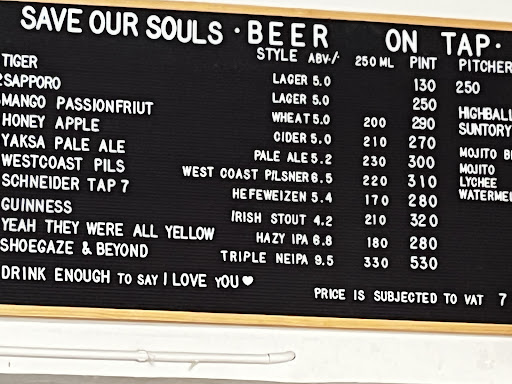 SAVE OUR SOULS · BEER ON TAP ·
STYLE ABV-/- 250 ML PINT PITCHER
TIGER LAGER 5.0 130 250
SAPPORO LAGER 5.0 250 HIGHBALL
MANGO PASSIONFRIUT WHEAT 5.0 200 290 SUNTORY
HONEY APPLE CIDER 5.0 210 270 MOJITO
YAKSA PALE ALE PALE ALE 5.2 230 300 MOJITO
WESTCOAST PILS WEST COAST PILSNER 6.5 220 310 LYCHEE
SCHNEIDER TAP 7 HEFEWEIZEN 5.4 170 280
GUINNESS IRISH STOUT 4.2 210 320
YEAH THEY WERE ALL YELLOW HAZY IPA 6.8 180 280
SHOEGAZE & BEYOND TRIPLE NEIPA 9.5 330 530
DRINK ENOUGH TO SAY I LOVE YOU♥
PRICE IS SUBJECTED TO VAT 7